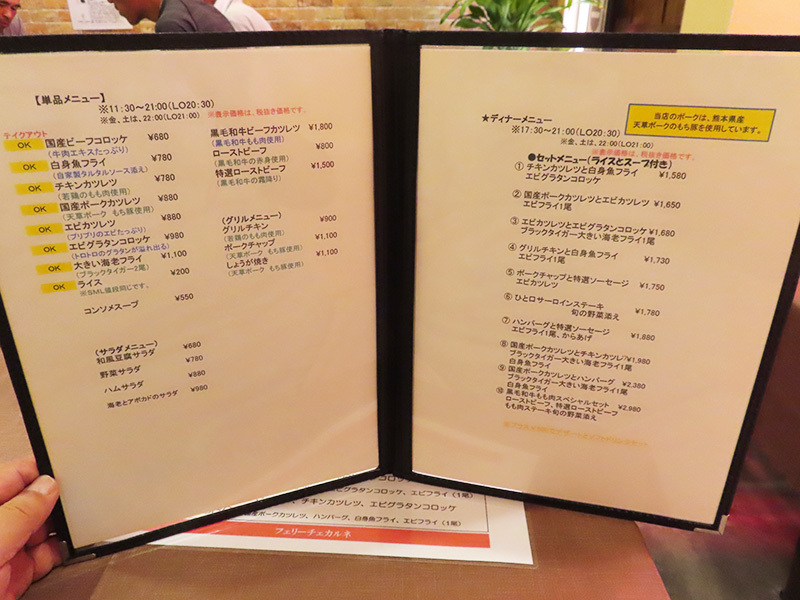 【単品メニュー】
※11:30~21:00(LO20:30)
※金、土は、22:00(LO21:00)
※表示価格は、税抜き価格です。
テイクアウト
OK 国産ビーフコロッケ ¥680
(牛肉エキスたっぷり)
OK 白身魚フライ ¥780
(自家製タルタルソース添え)
OK チキンカツレツ ¥780
(若鶏のもも肉使用)
OK 国産ポークカツレツ ¥880
(天草ポーク もち豚使用)
OK エビカツレツ ¥880
(プリプリのエビたっぷり)
OK エビグラタンコロッケ ¥980
(トロトロのグラタンが溢れ出る)
OK 大きい海老フライ ¥1,100
(ブラックタイガー2尾)
OK ライス ¥200
※SML値段同じです。
コンソメスープ ¥550
(サラダメニュー)
和風豆腐サラダ ¥680
野菜サラダ ¥780
ハムサラダ ¥880
海老とアボカドのサラダ ¥980
黒毛和牛ビーフカツレツ ¥1,800
(黒毛和牛もも肉使用)
ローストビーフ ¥800
(黒毛和牛の赤身使用)
特選ローストビーフ ¥1,500
(黒毛和牛の霜降り)
(グリルメニュー)
グリルチキン ¥900
(若鶏のもも肉使用)
ポークチャップ ¥1,100
(天草ポーク もち豚使用)
しょうが焼き ¥1,100
(天草ポーク もち豚使用)
★ディナーメニュー
※17:30~21:00(LO20:30)
※金、土は、22:00(LO21:00)
当店のポークは、熊本県産
天草ポークのもち豚を使用しています。
※表示価格は、税抜き価格です。
●セットメニュー(ライスとスープ付き)
① チキンカツレツと白身魚フライ ¥1,580
エビグラタンコロッケ
② 国産ポークカツレツとエビカツレツ ¥1,650
エビフライ1尾
③ エビカツレツとエビグラタンコロッケ ¥1,680
ブラックタイガー大きい海老フライ1尾
④ グリルチキンと白身魚フライ ¥1,730
エビフライ1尾
⑤ ポークチャップと特選ソーセージ ¥1,750
エビカツレツ
⑥ ひと口サーロインステーキ ¥1,780
旬の野菜添え
⑦ ハンバーグと特選ソーセージ ¥1,880
エビフライ1尾、からあげ
⑧ 国産ポークカツレツとチキンカツレツ ¥1,980
ブラックタイガー大きい海老フライ1尾
白身魚フライ
⑨ 国産ポークカツレツとハンバーグ ¥2,380
ブラックタイガー大きい海老フライ1尾
白身魚フライ
⑩ 黒毛和牛もも肉スペシャルセット ¥2,980
ローストビーフ、特選ローストビーフ
もも肉ステーキ旬の野菜添え
エビグラタンコロッケ、エビフライ(1尾)
チキンカツレツ、エビグラタンコロッケ
国産ポークカツレツ、ハンバーグ、白身魚フライ、エビフライ(1尾)
フェリーチェカルネ